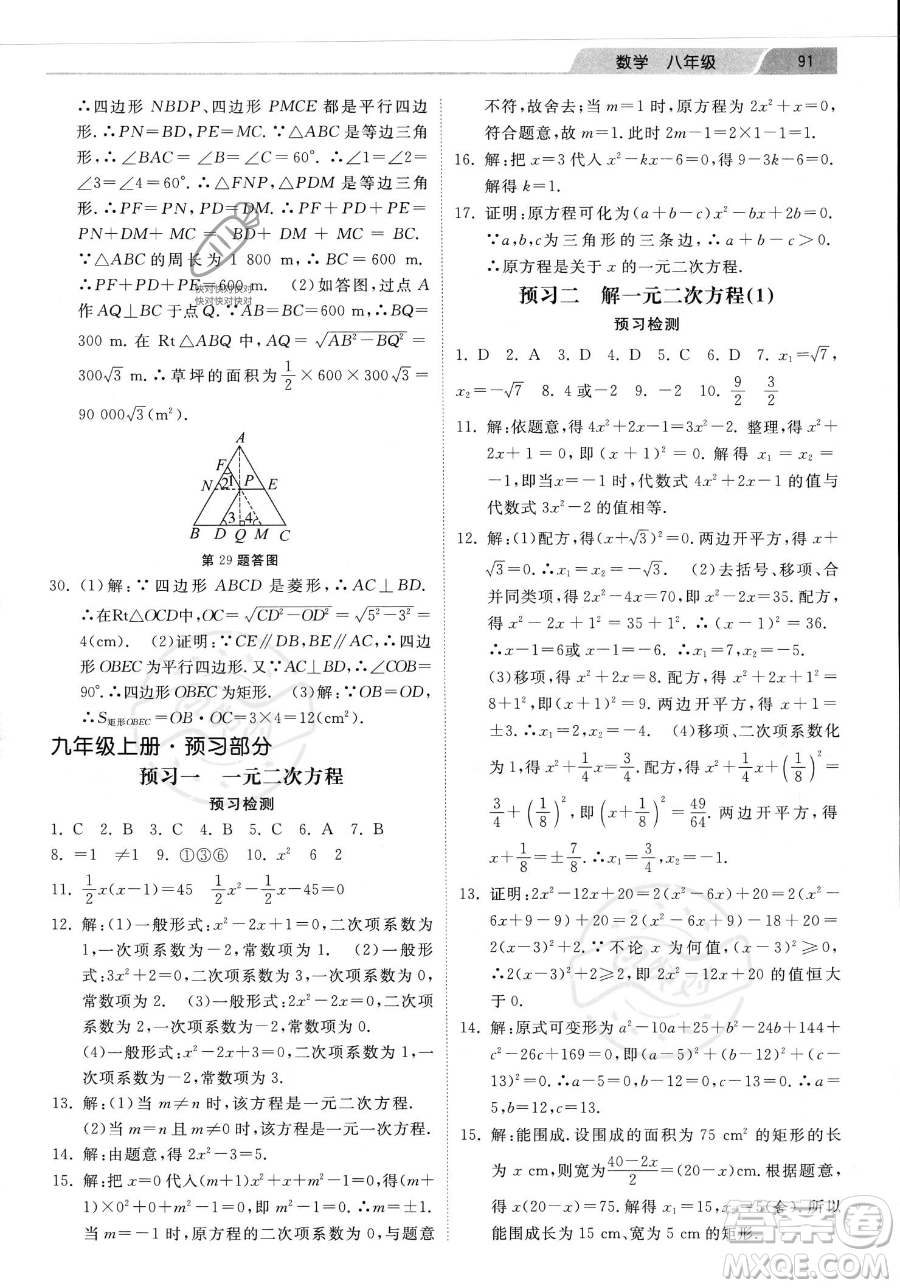 数学 八年级 91
∴四边形 NBDP、四边形 PMCE 都是平行四边
形.∴PN=BD,PE=MC.∵△ABC 是等边三角
形,∴∠BAC = ∠BCA = 60°.∴∠2 = ∠1 =
∠3=∠4=60°.∴△FNP,△PDM 是等边三角
形.∴PF=PN,PD=DM.∴PF+PD+PE=
PN+DM+MC = BD+DM+MC = BC.
∵△ABC 的周长为 1 800 m.∴BC=600 m.
∴PF+PD+PE=600 m. (2)如答图,过点 A
作 AQ⊥BC 于点 Q.∵AB=BC=600 m.∴BQ=
300 m. 在 Rt△ABQ 中,AQ = √(AB²-BQ²) =
300√3 m.∴草坪的面积为 1/2 ×600×300√3 =
90 000√3(m²).
A
F
N 2 1 P E
3 4
B D Q M C
第 29 题答图
30. (1)解:∵四边形 ABCD 是菱形,∴AC⊥BD.
∴在Rt△OCD中,OC=√(CD²-OD²)=√(5²-3²)=
4(cm). (2)证明:∵CE∥DB,BE∥AC,∴四边
形 OBEC 为平行四边形.又∵AC⊥BD,∴∠COB=
90°.∴四边形 OBEC 为矩形. (3)解:∵OB=OD,
∴S矩形OBEC=OB·OC=3×4=12(cm²).
九年级上册·预习部分
预习一 一元二次方程
预习检测
1. C 2. B 3. C 4. C 5. A 6. A 7. B
8. =1 ≠1 9. ①③⑥ 10. x² 6 2
11. 1/2 x(x-1)=45 1/2 x²-1/2 x-45=0
12. 解:(1)一般形式:x²-2x+1=0,二次项系数为
1,一次项系数为-2,常数项为 1. (2)一般形
式:3x²+2=0,二次项系数为 3,一次项系数为 0,
常数项为 2. (3)一般形式:2x²-x=0,二次项
系数为 2,一次项系数为-1,常数项为 0.
(4)一般形式:-x²-2x+3=0,二次项系数为
-1,一次项系数为-2,常数项为 3.
13. 解:(1)当 m≠n 时,该方程是一元二次方程.
(2)当 m=n 且 m≠0 时,该方程是一元一次方程.
14. 解:由题意,得 2x²-3=5.
15. 解:把 x=0 代入(m+1)x²+x+m²-1=0,得(m+
1)×0²+0+m²-1=0,解得 m=-1 或 m=1.
当 m=-1 时,原方程为 x=0,为一次方程,与题意
不符,故舍去;当 m=1 时,原方程为 2x²+x=0,
符合题意,故 m=1. 此时 2m-1=2×1-1=1.
16. 解:把 x=3 代人 x²-kx-6=0,得 9-3k-6=0.
解得 k=1.
17. 证明:原方程可化为(a+b-c)x²-bx+2b=0.
∵a,b,c 为三角形的三条边,∴a+b-c>0.
∴原方程是关于 x 的一元二次方程.
预习二 解一元二次方程(1)
预习检测
1. D 2. A 3. D 4. A 5. C 6. D 7. x₁=√7,
x₂=-√7 8. 4 或-2 9. -2 10. 9/2 3/2
11. 解:依题意,得 4x²+2x-1=3x²-2. 整理,得 x²+
2x+1=0,即(x+1)²=0. 解得 x₁=x₂=
-1,即当 x=-1 时,代数式 4x²+2x-1 的值与
代数式 3x²-2 的值相等.
12. 解:(1)配方,得(x+√3)²=0. 两边开平方,得 x+
√3=0.∴x₁=x₂=-√3. (2)去括号、移项、合
并同类项,得 x²+2x=35. 两边同时加 1,得
x²+2x+1²=35+1²,即(x+1)²=36.
∴x+1=±6.∴x₁=5,x₂=-7.
(3)移项,得 x²+2x=8. 配方,得 x²+2x+1²=
8+1²,即(x+1)²=9. 两边开平方,得 x+1=
±3.∴x₁=2,x₂=-4. (4)移项、二次项系数化
为 1,得 x²+1/4 x=3/4. 配方,得 x²+1/4 x+(1/8)²=
3/4+(1/8)²,即(x+1/8)²=49/64. 两边开平方,得
x+1/8=±7/8.∴x₁=3/4,x₂=-1.
13. 证明:2x²-12x+20=2(x²-6x)+20=2(x²-
6x+9-9)+20=2(x²-6x+9)-18+20=
2(x-3)²+2.∵不论 x 为何值,(x-3)²≥0,
∴2(x-3)²+2≥2.∴2x²-12x+20 的值恒大
于 0.
14. 解:原式可变形为 a²-10a+25+b²-24b+144+
c²-26c+169=0,即(a-5)²+(b-12)²+(c-
13)²=0.∴a-5=0,b-12=0,c-13=0.∴a=
5,b=12,c=13.
15. 解:能围成.设围成的面积为 75 cm² 的矩形的长
为 x cm,则宽为(40-2x)/2=(20-x)cm.根据题意,
得 x(20-x)=75. 解得 x₁=15,x₂=5(舍).所以
能围成长为 15 cm,宽为 5 cm 的矩形.
快对快对快对
快对快对快对
答案卷